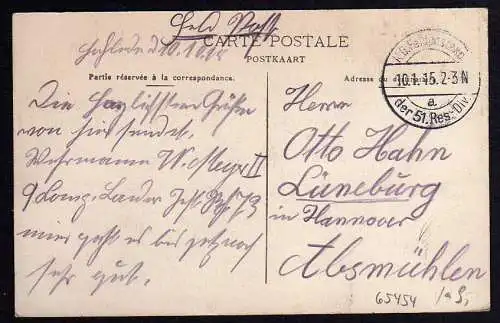 Feld Post
CARTE POSTALE
POSTKAART
d 10.1.15
Partie réservée à la correspondance.
Adresse du
10.1.15.2-3N
a
der 51. Res.-Div.
Die herzlichsten Grüße
von hier sendet
Wehrmann W. Meyer II
9 Komp. Landw. 73
mir geht es bis jetz noch
sehr gut.
Herrn
Otto Hahn
Lüneburg
in Hannover
Absmühlen
65454